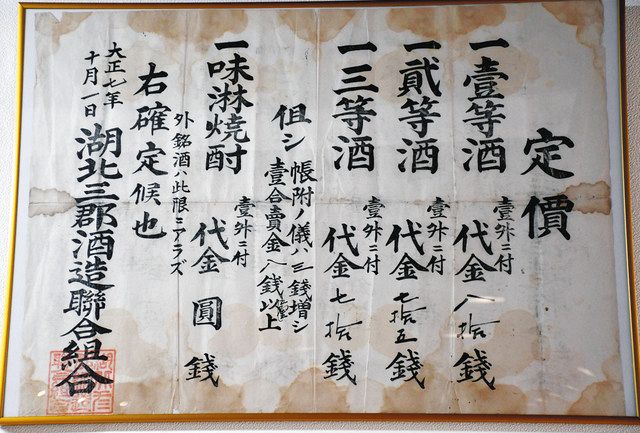 定價
一壹等酒 壹升ニ付 代金八拾錢
一貳等酒 壹升ニ付 代金七拾五錢
一三等酒 壹升ニ付 代金七拾錢
但シ 帳附ノ儀ハ三錢増シ
壹合賣金八錢以上
一味淋焼酎 壹升ニ付 代金 圓 錢
外銘酒ハ此限ニアラズ
右確定候也
大正七年
十月一日
湖北三郡酒造聯合組合